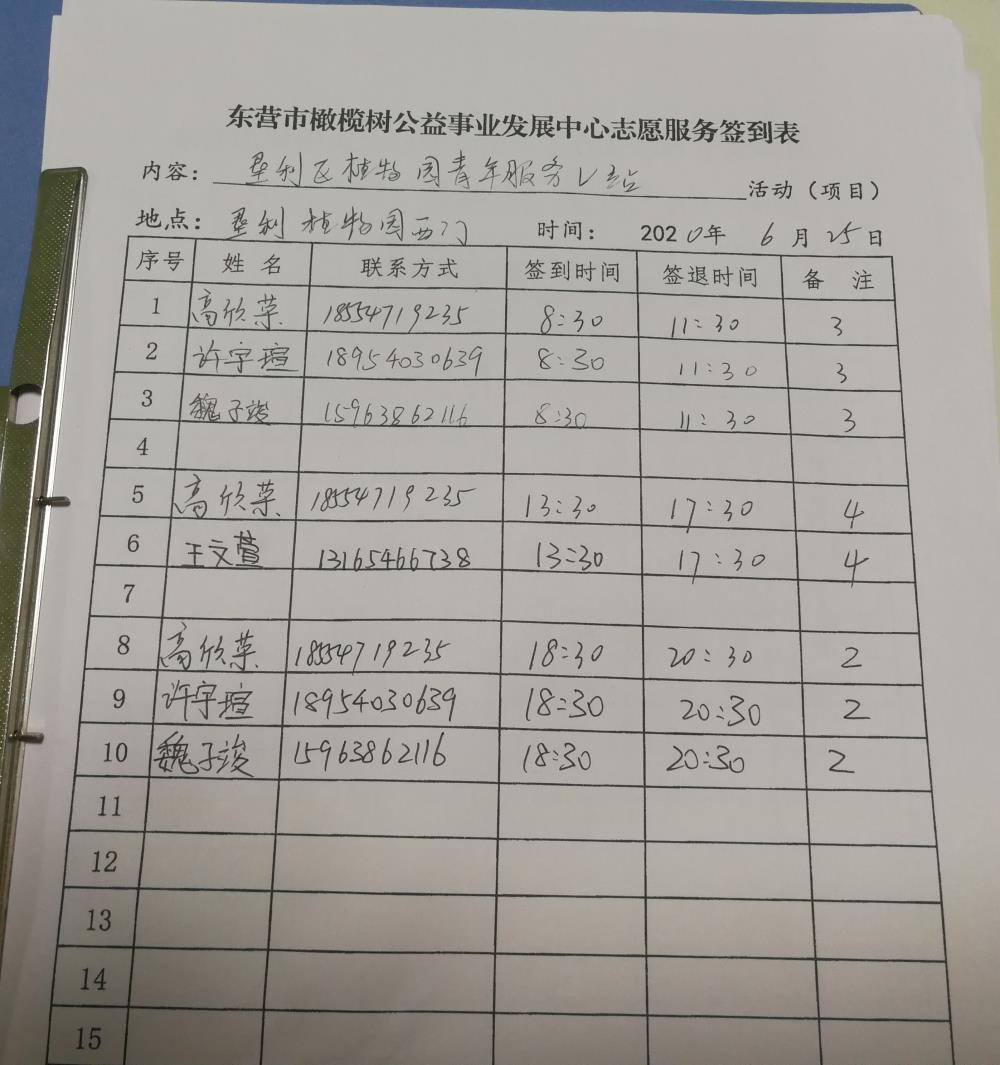 东营市橄榄树公益事业发展中心志愿服务签到表
内容：垦利区植物园青年服务V站 活动（项目）
地点：垦利植物园西门 时间： 2020年 6月25日
序号 姓名 联系方式 签到时间 签退时间 备注
1 高欣荣 18554719235 8:30 11:30 3
2 许宇瑄 18954030639 8:30 11:30 3
3 魏子竣 15963862116 8:30 11:30 3
4
5 高欣荣 18554719235 13:30 17:30 4
6 王文萱 13165466738 13:30 17:30 4
7
8 高欣荣 18554719235 18:30 20:30 2
9 许宇瑄 18954030639 18:30 20:30 2
10 魏子竣 15963862116 18:30 20:30 2
11
12
13
14
15